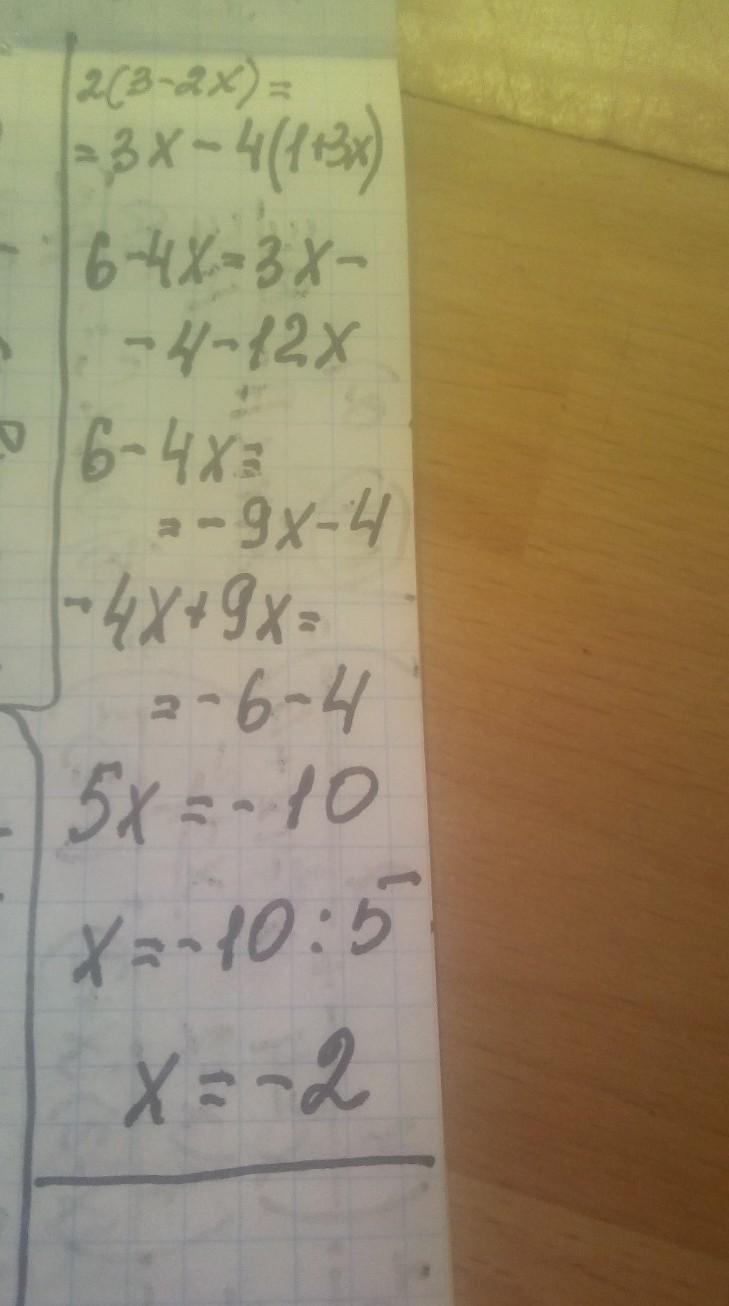 2(3-2x)=
=3x-4(1+3x)
6-4x=3x-
-4-12x
6-4x=
=-9x-4
-4x+9x=
=-6-4
5x=-10
x=-10:5
x=-2